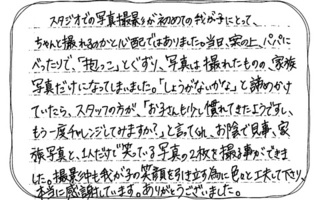 スタジオでの写真撮影が初めての我が子にとって、
ちゃんと撮れるのかと心配ではありました。当日、案の上、パパに
べったりで、「抱っこ」とぐずり、写真は撮れたものの、家族
写真だけになってしまいました。「しょうがないかな」と諦めかけ
ていたら、スタッフの方が、「お子さんも少し慣れてきたようですし、
もう一度チャレンジしてみますか?」と言ってくれ、お陰で見事、家
族写真と、1人だけで笑っている写真の2枚を撮る事ができま
した。撮影中も我が子の笑顔を引き立す為に色々と工夫して下さり、
本当に感謝しています。ありがとうございました。